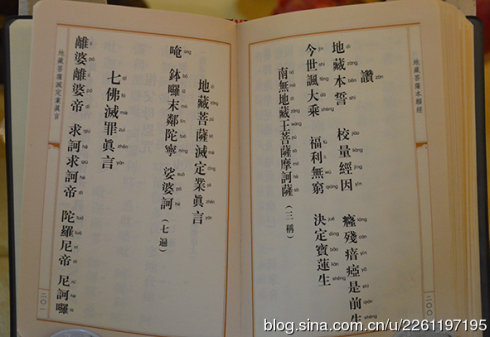 地藏菩薩本願經
讚
地藏本誓 校量經因 癃殘瘖瘂是前生
今世諷大乘 福利無窮 決定寶蓮生
南無地藏王菩薩摩訶薩(三稱)
二〇〇
地藏菩薩滅定業真言
唵 鉢囉末鄰陀寧 娑婆訶(七遍)
七佛滅罪真言
離婆離婆帝 求訶求訶帝 陀羅尼帝 尼訶囉
地藏菩薩滅定業真言
二〇一
blog.sina.com.cn/u/2261197195